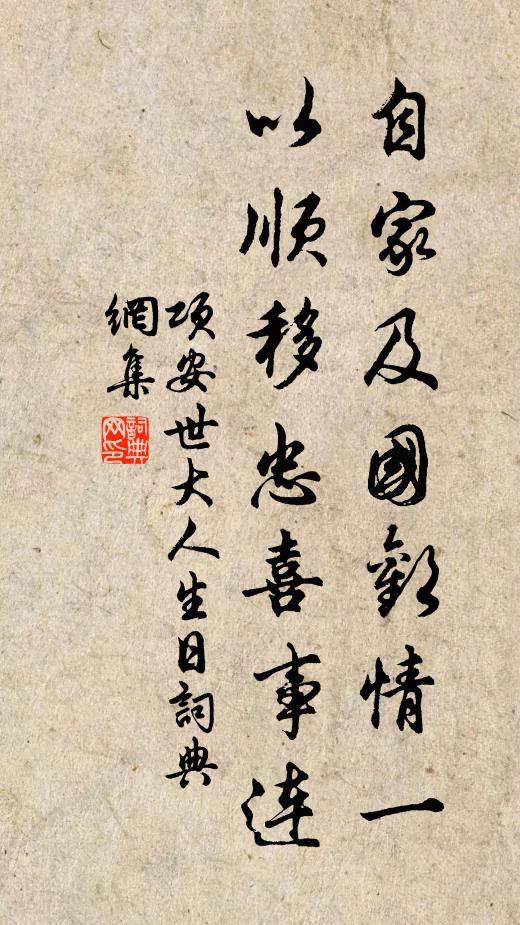 自家及國歡情一
以順移忠喜事連
項安世大人生日詞典
網集
詞典
网印